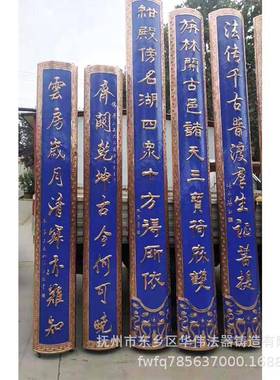 法千古普渡群生証菩提
旃林開古邑諸天三寶荷雙
紺殿傍名湖四衆十方得所依
齊闕乾坤古今何可曉
雲房歲月清寒亦難知
抚州市东乡区华伟法器铸造有限
fwfq785637000.1688